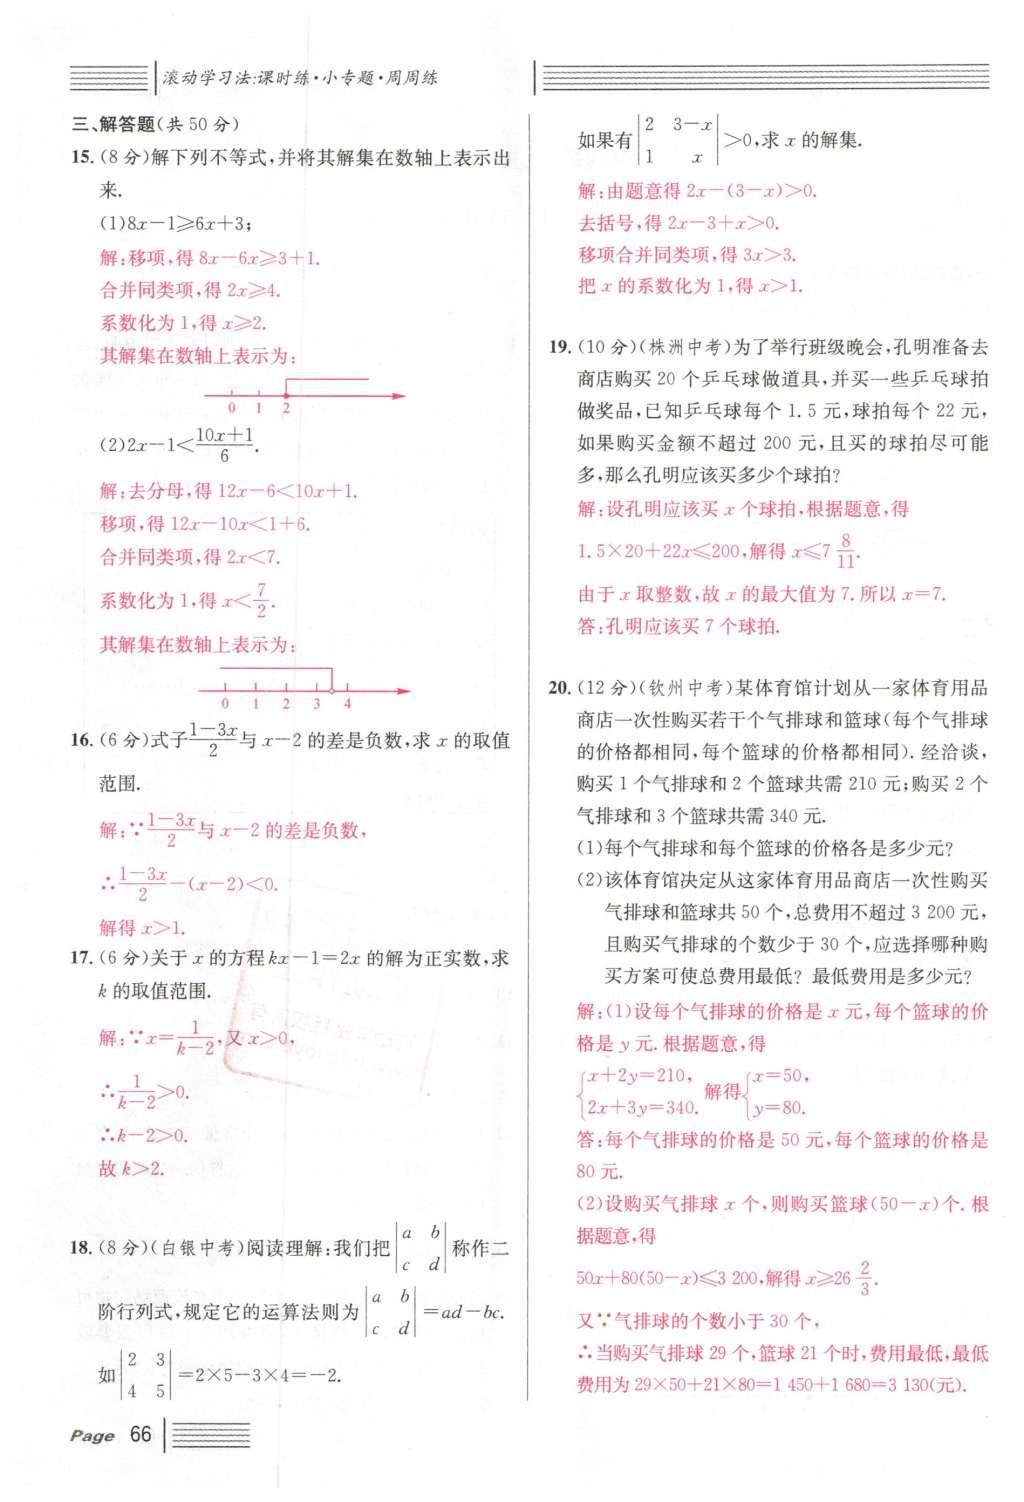 滚动学习法:课时练·小专题·周周练
三、解答题(共 50 分)
15. (8 分)解下列不等式,并将其解集在数轴上表示出
来.
(1)8x-1≥6x+3;
解:移项,得 8x-6x≥3+1.
合并同类项,得 2x≥4.
系数化为 1,得 x≥2.
其解集在数轴上表示为:
0 1 2
(2)2x-1<\frac{10x+1}{6}.
解:去分母,得 12x-6<10x+1.
移项,得 12x-10x<1+6.
合并同类项,得 2x<7.
系数化为 1,得 x<\frac{7}{2}.
其解集在数轴上表示为:
0 1 2 3 4
16. (6 分)式子\frac{1-3x}{2}与 x-2 的差是负数,求 x 的取值
范围.
解:∵\frac{1-3x}{2}与 x-2 的差是负数,
∴\frac{1-3x}{2}-(x-2)<0.
解得 x>1.
17. (6 分)关于 x 的方程 kx-1=2x 的解为正实数,求
k 的取值范围.
解:∵x=\frac{1}{k-2},又 x>0,
∴\frac{1}{k-2}>0.
∴k-2>0.
故 k>2.
18. (8 分)(白银中考)阅读理解:我们把|a b; c d|称作二
阶行列式,规定它的运算法则为|a b; c d|=ad-bc.
如|2 3; 4 5|=2×5-3×4=-2.
Page 66
如果有|2 3-x; 1 x|>0,求 x 的解集.
解:由题意得 2x-(3-x)>0.
去括号,得 2x-3+x>0.
移项合并同类项,得 3x>3.
把 x 的系数化为 1,得 x>1.
19. (10 分)(株洲中考)为了举行班级晚会,孔明准备去
商店购买 20 个乒乓球做道具,并买一些乒乓球拍
做奖品,已知乒乓球每个 1.5 元,球拍每个 22 元,
如果购买金额不超过 200 元,且买的球拍尽可能
多,那么孔明应该买多少个球拍?
解:设孔明应该买 x 个球拍,根据题意,得
1.5×20+22x≤200,解得 x≤7\frac{8}{11}.
由于 x 取整数,故 x 的最大值为 7. 所以 x=7.
答:孔明应该买 7 个球拍.
20. (12 分)(钦州中考)某体育馆计划从一家体育用品
商店一次性购买若干个气排球和篮球(每个气排球
的价格都相同,每个篮球的价格都相同). 经洽谈,
购买 1 个气排球和 2 个篮球共需 210 元;购买 2 个
气排球和 3 个篮球共需 340 元.
(1)每个气排球和每个篮球的价格各是多少元?
(2)该体育馆决定从这家体育用品商店一次性购买
气排球和篮球共 50 个,总费用不超过 3 200 元,
且购买气排球的个数少于 30 个,应选择哪种购
买方案可使总费用最低? 最低费用是多少元?
解:(1)设每个气排球的价格是 x 元,每个篮球的价
格是 y 元. 根据题意,得
{x+2y=210, 2x+3y=340. 解得{x=50, y=80.
答:每个气排球的价格是 50 元,每个篮球的价格是
80 元.
(2)设购买气排球 x 个,则购买篮球(50-x)个. 根
据题意,得
50x+80(50-x)≤3 200,解得 x≥26\frac{2}{3}.
又∵气排球的个数小于 30 个,
∴当购买气排球 29 个,篮球 21 个时,费用最低,最低
费用为 29×50+21×80=1 450+1 680=3 130(元).